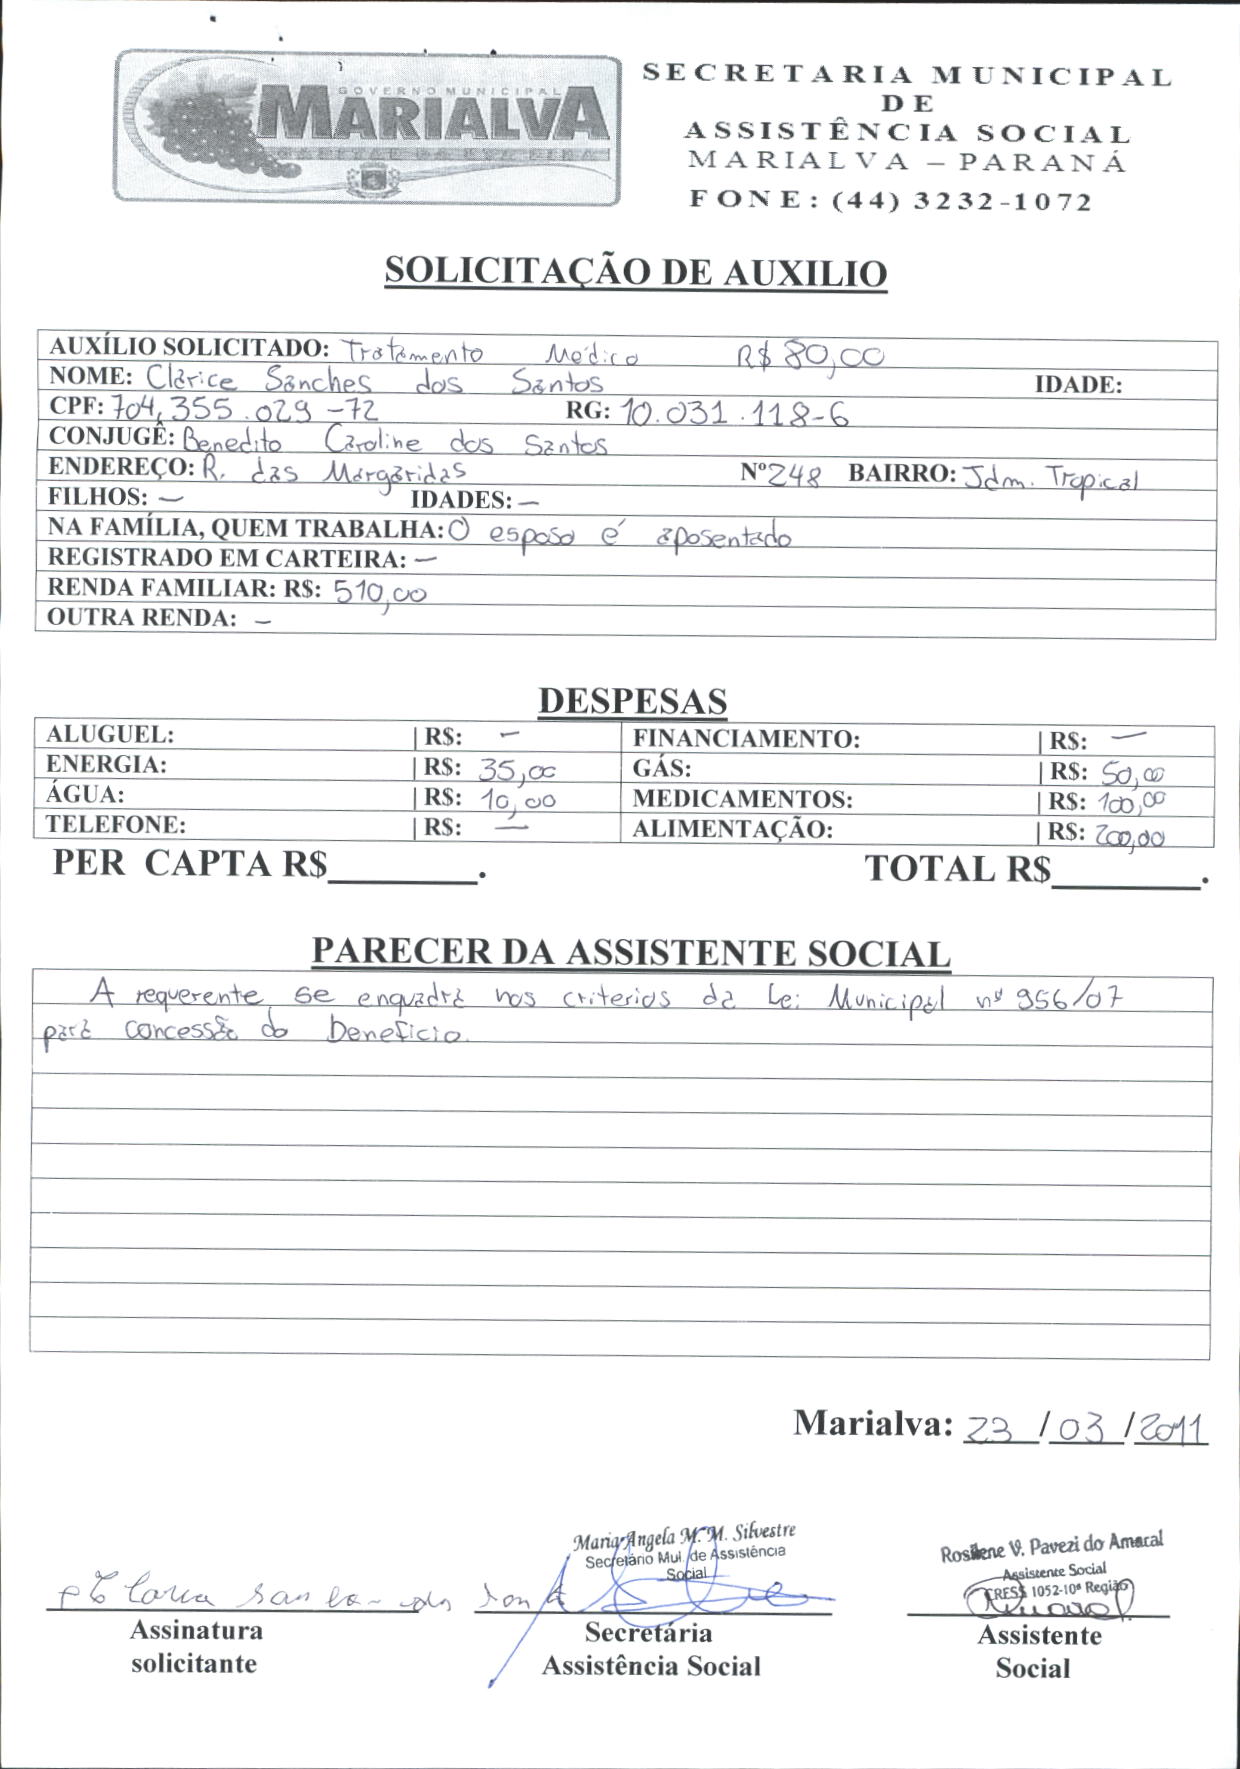 GOVERNO MUNICIPAL
MARIALVA
CAPITAL DA UVA FINA
SECRETARIA MUNICIPAL
DE
ASSISTÊNCIA SOCIAL
MARIALVA – PARANÁ
FONE: (44) 3232-1072
SOLICITAÇÃO DE AUXILIO
AUXÍLIO SOLICITADO: Tratamento Médico R$ 80,00
NOME: Clarice Sanches dos Santos IDADE:
CPF: 704.355.029-72 RG: 10.031.118-6
CONJUGÊ: Benedito Caroline dos Santos
ENDEREÇO: R. das Margaridas Nº 248 BAIRRO: Jdm. Tropical
FILHOS: — IDADES: —
NA FAMÍLIA, QUEM TRABALHA: O esposo é aposentado
REGISTRADO EM CARTEIRA: —
RENDA FAMILIAR: R$: 510,00
OUTRA RENDA: —
DESPESAS
ALUGUEL: | R$: — FINANCIAMENTO: | R$: —
ENERGIA: | R$: 35,00 GÁS: | R$: 50,00
ÁGUA: | R$: 10,00 MEDICAMENTOS: | R$: 100,00
TELEFONE: | R$: — ALIMENTAÇÃO: | R$: 200,00
PER CAPTA R$________. TOTAL R$________.
PARECER DA ASSISTENTE SOCIAL
A requerente se enquadra nos criterios da Lei Municipal nº 956/07
para concessão do beneficio.
Marialva: 23 / 03 / 2011
Maria Angela M. M. Silvestre
Secretário Mul. de Assistência
Social
Rosilene V. Pavezi do Amaral
Assistente Social
CRESS 1052-10ª Região
Assinatura
solicitante
Secretária
Assistência Social
Assistente
Social